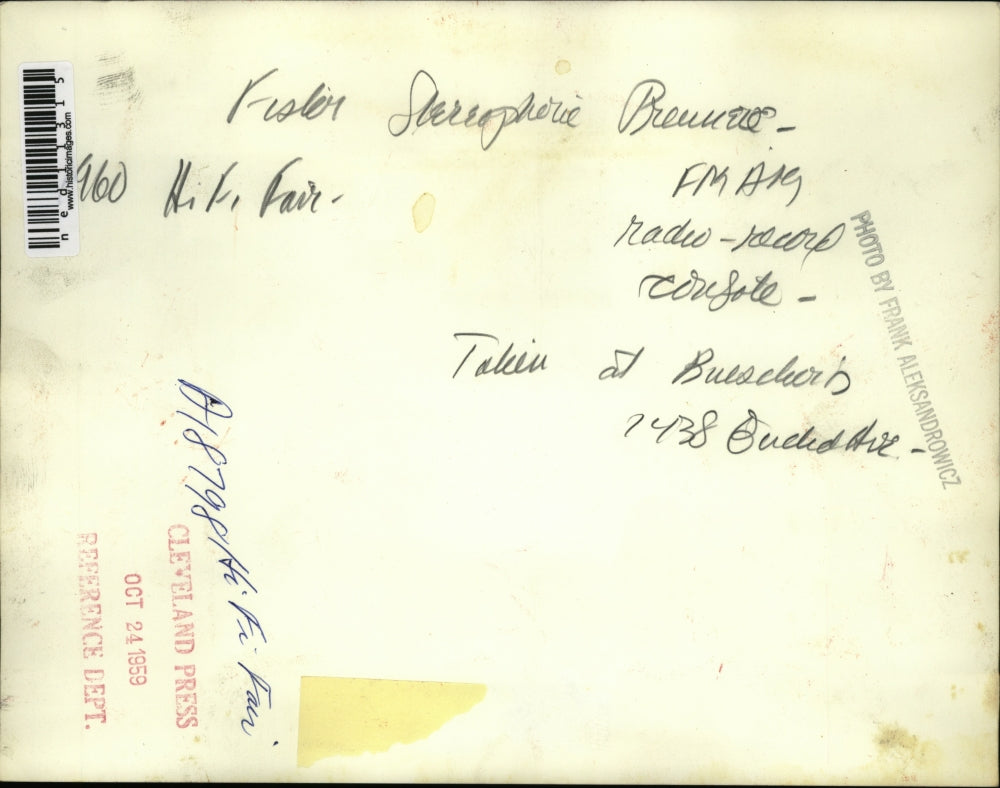 Fisher Stereophonic Premiere -
960 Hi Fi Fair -
FM AM
radio-record
console -
Taken at Buescher's
7438 Euclid Ave -
PHOTO BY FRANK ALEKSANDROWICZ
A18798 Hi Fi Fair
CLEVELAND PRESS
OCT 24 1959
REFERENCE DEPT.
www.historicimages.com
ned11315